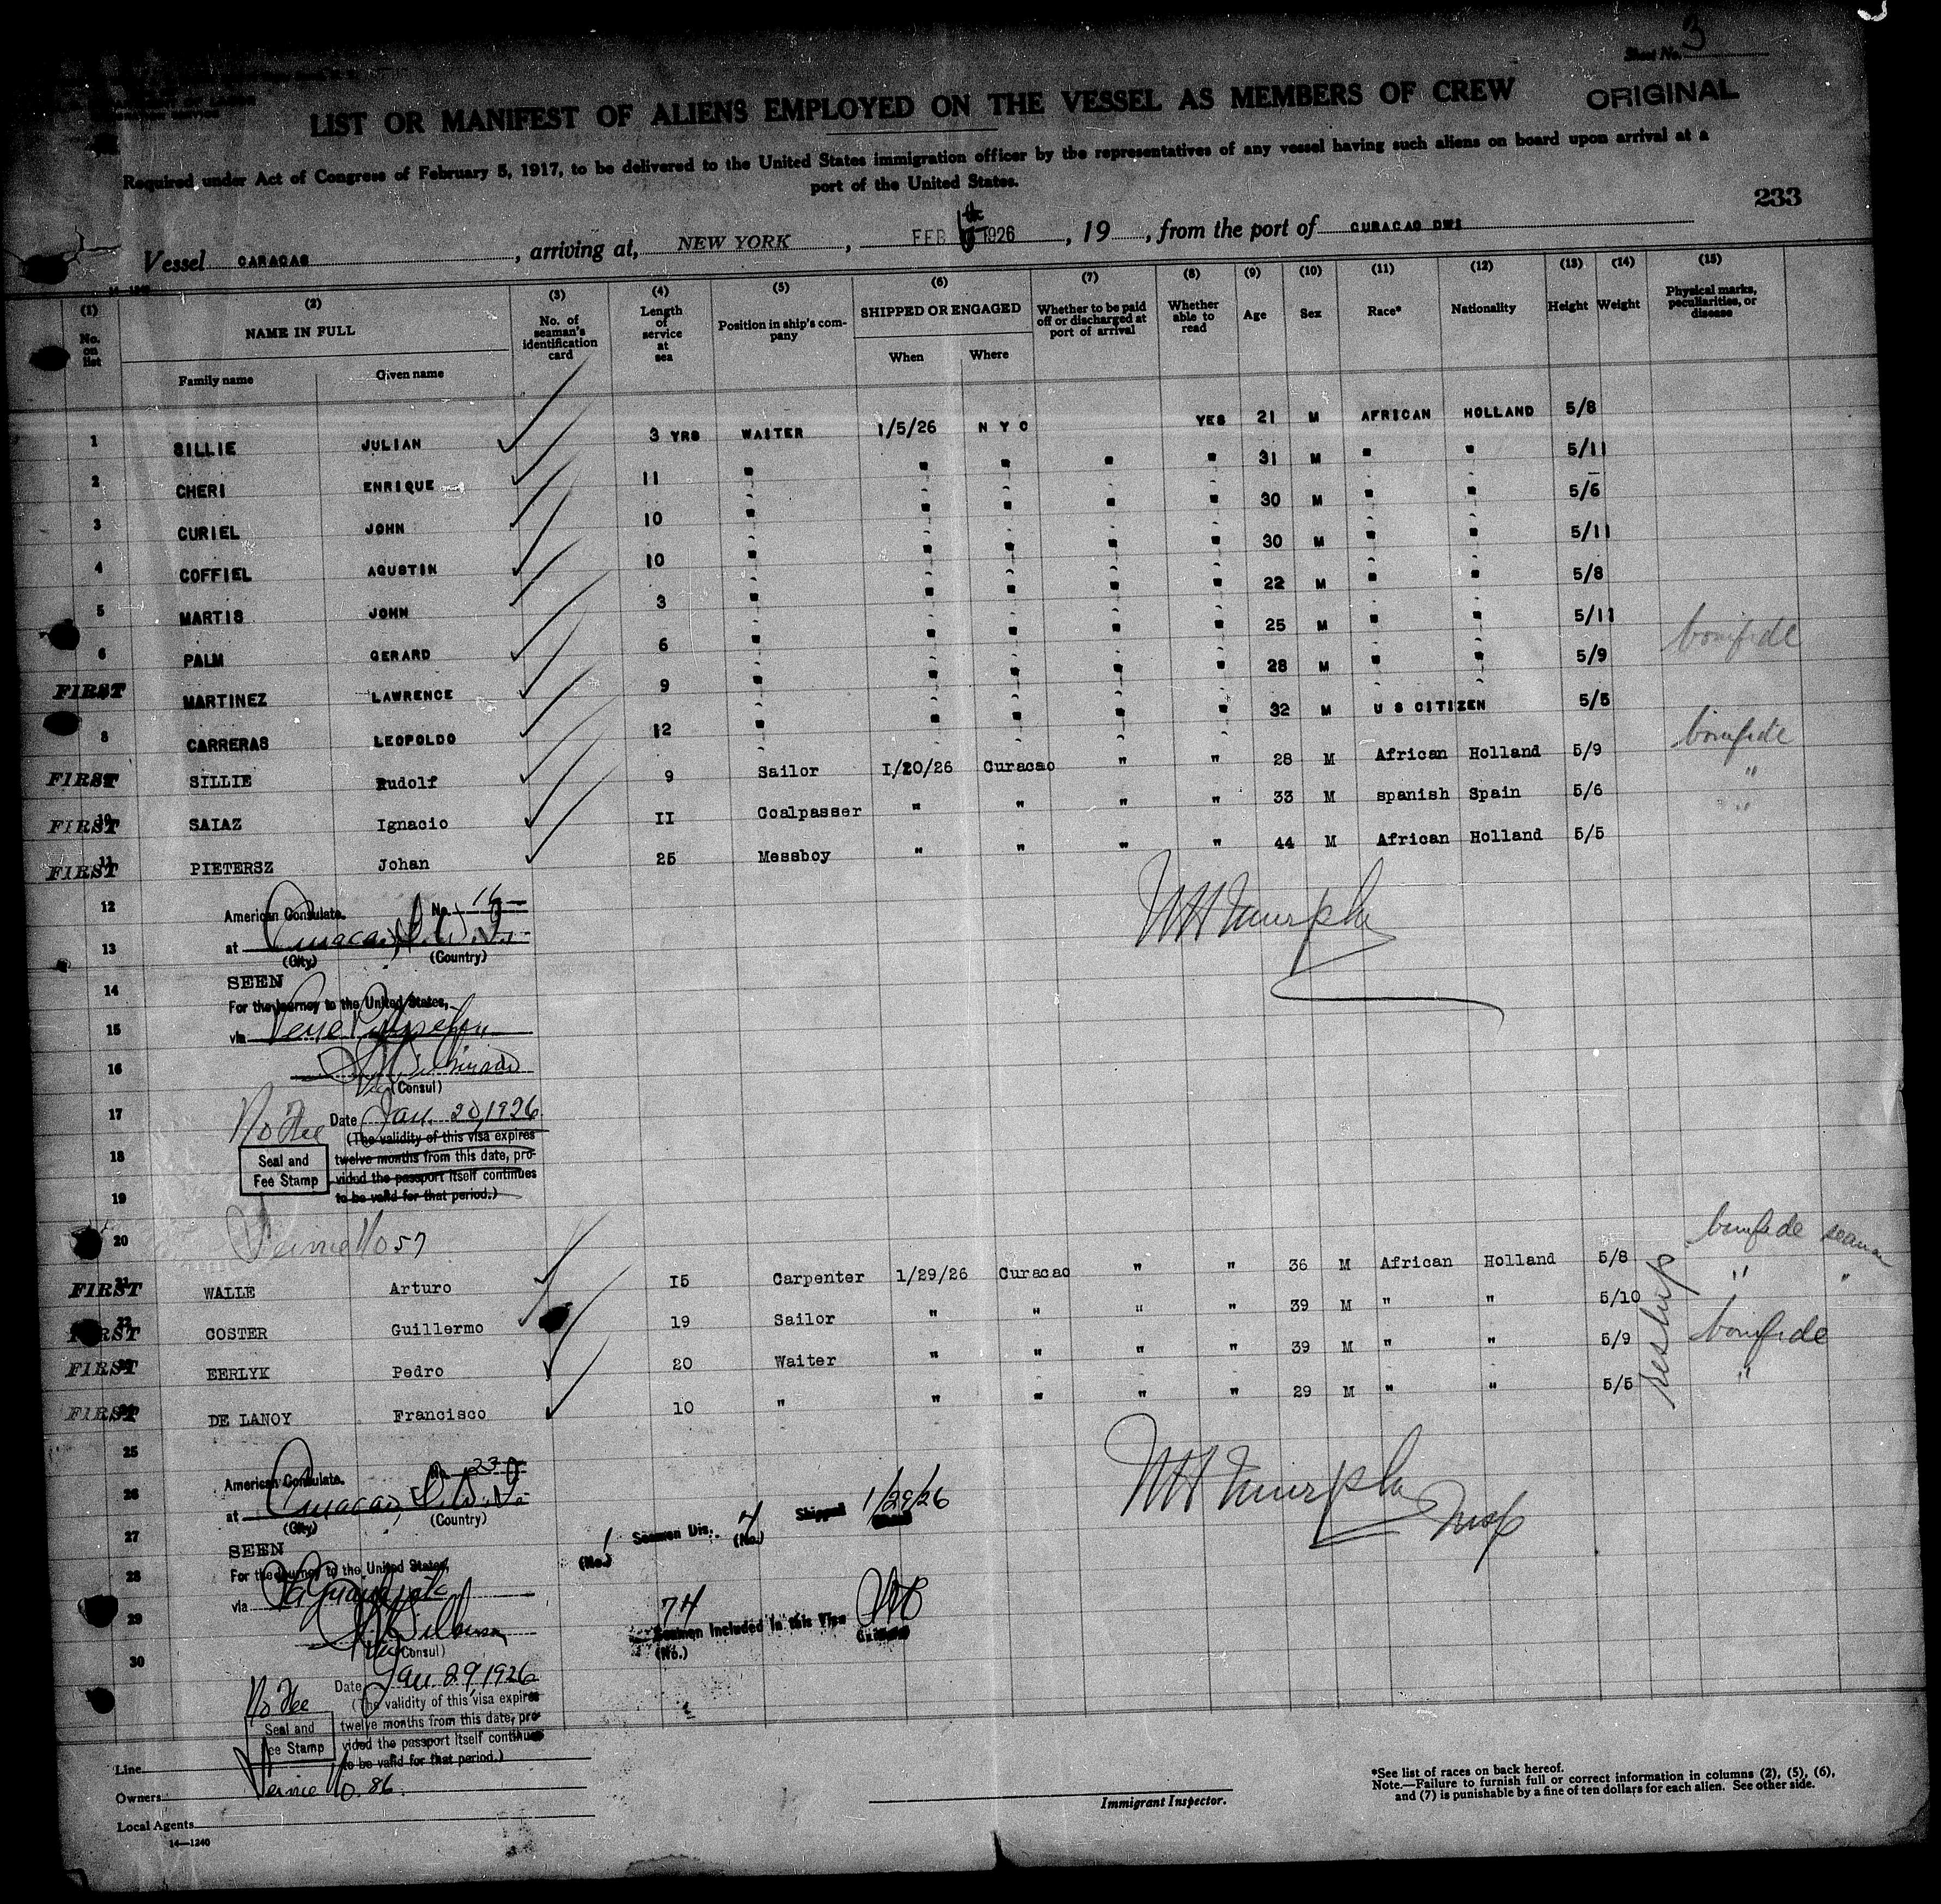 Sheet No. 3
ORIGINAL
LIST OR MANIFEST OF ALIENS EMPLOYED ON THE VESSEL AS MEMBERS OF CREW
Required under Act of Congress of February 5, 1917, to be delivered to the United States immigration officer by the representatives of any vessel having such aliens on board upon arrival at a
port of the United States.
233
Vessel CARACAS, arriving at, NEW YORK, FEB 1926, 19, from the port of CURACAO DWI
(1) (2) (3) (4) (5) (6) (7) (8) (9) (10) (11) (12) (13) (14) (15)
No. on list NAME IN FULL No. of seaman's identification card Length of service at sea Position in ship's company SHIPPED OR ENGAGED Whether to be paid off or discharged at port of arrival Whether able to read Age Sex Race* Nationality Height Weight Physical marks, peculiarities, or disease
Family name Given name When Where
1 SILLIE JULIAN 3 YRS WAITER 1/5/26 N Y C YES 21 M AFRICAN HOLLAND 5/8
2 CHERI ENRIQUE 11 " " " " " 31 M " " 5/11
3 CURIEL JOHN 10 " " " " " 30 M " " 5/6
4 COFFIEL AGUSTIN 10 " " " " " 30 M " " 5/11
5 MARTIS JOHN 3 " " " " " 22 M " " 5/8
6 PALM GERARD 6 " " " " " 25 M " " 5/11
FIRST MARTINEZ LAWRENCE 9 " " " " " 28 M " " 5/9 bonifide
8 CARRERAS LEOPOLDO 12 " " " " " 32 M U S CITIZEN 5/5
FIRST SILLIE Rudolf 9 Sailor 1/20/26 Curacao " " 28 M African Holland 5/9 bonifide
FIRST 10 SAIAZ Ignacio II Coalpasser " " " " 33 M spanish Spain 5/6 "
FIRST 11 PIETERSZ Johan 25 Messboy " " " " 44 M African Holland 5/5 "
12
American Consulate. No. 16
13
at Curacao, D.W.I.
(City) (Country)
W H Murphy
14
SEEN
For the journey to the United States,
15
via
16
(Consul)
17
No Fee Date Jan. 20, 1926
(The validity of this visa expires
18
Seal and Fee Stamp
twelve months from this date, pro-
vided the passport itself continues
19
to be valid for that period.)
20
No 57
FIRST 21 WALLE Arturo 15 Carpenter 1/29/26 Curacao " " 36 M African Holland 5/8 bonifide seaman
FIRST 22 COSTER Guillermo 19 Sailor " " " " 39 M " " 5/10 " "
FIRST EERLYK Pedro 20 Waiter " " " " 39 M " " 5/9 bonifide
FIRST DE LANOY Francisco 10 " " " " " 29 M " " 5/5 "
reship
25
American Consulate. No. 23
26
at Curacao, D.W.I.
(City) (Country)
27
1 Seamen Dis. 4 Shipped 1/29/26
(No.) (No.)
W H Murphy Insp
SEEN
28
For the journey to the United States,
via La Guayra
29
74 Seamen Included in this Visa
(No.)
30
(Consul)
Date Jan 29, 1926
No Fee (The validity of this visa expires
Seal and Fee Stamp
twelve months from this date, pro-
vided the passport itself continues
to be valid for that period.)
Line
No. 86.
Owners
Local Agents
14—1240
Immigrant Inspector.
*See list of races on back hereof.
Note.—Failure to furnish full or correct information in columns (2), (5), (6),
and (7) is punishable by a fine of ten dollars for each alien. See other side.